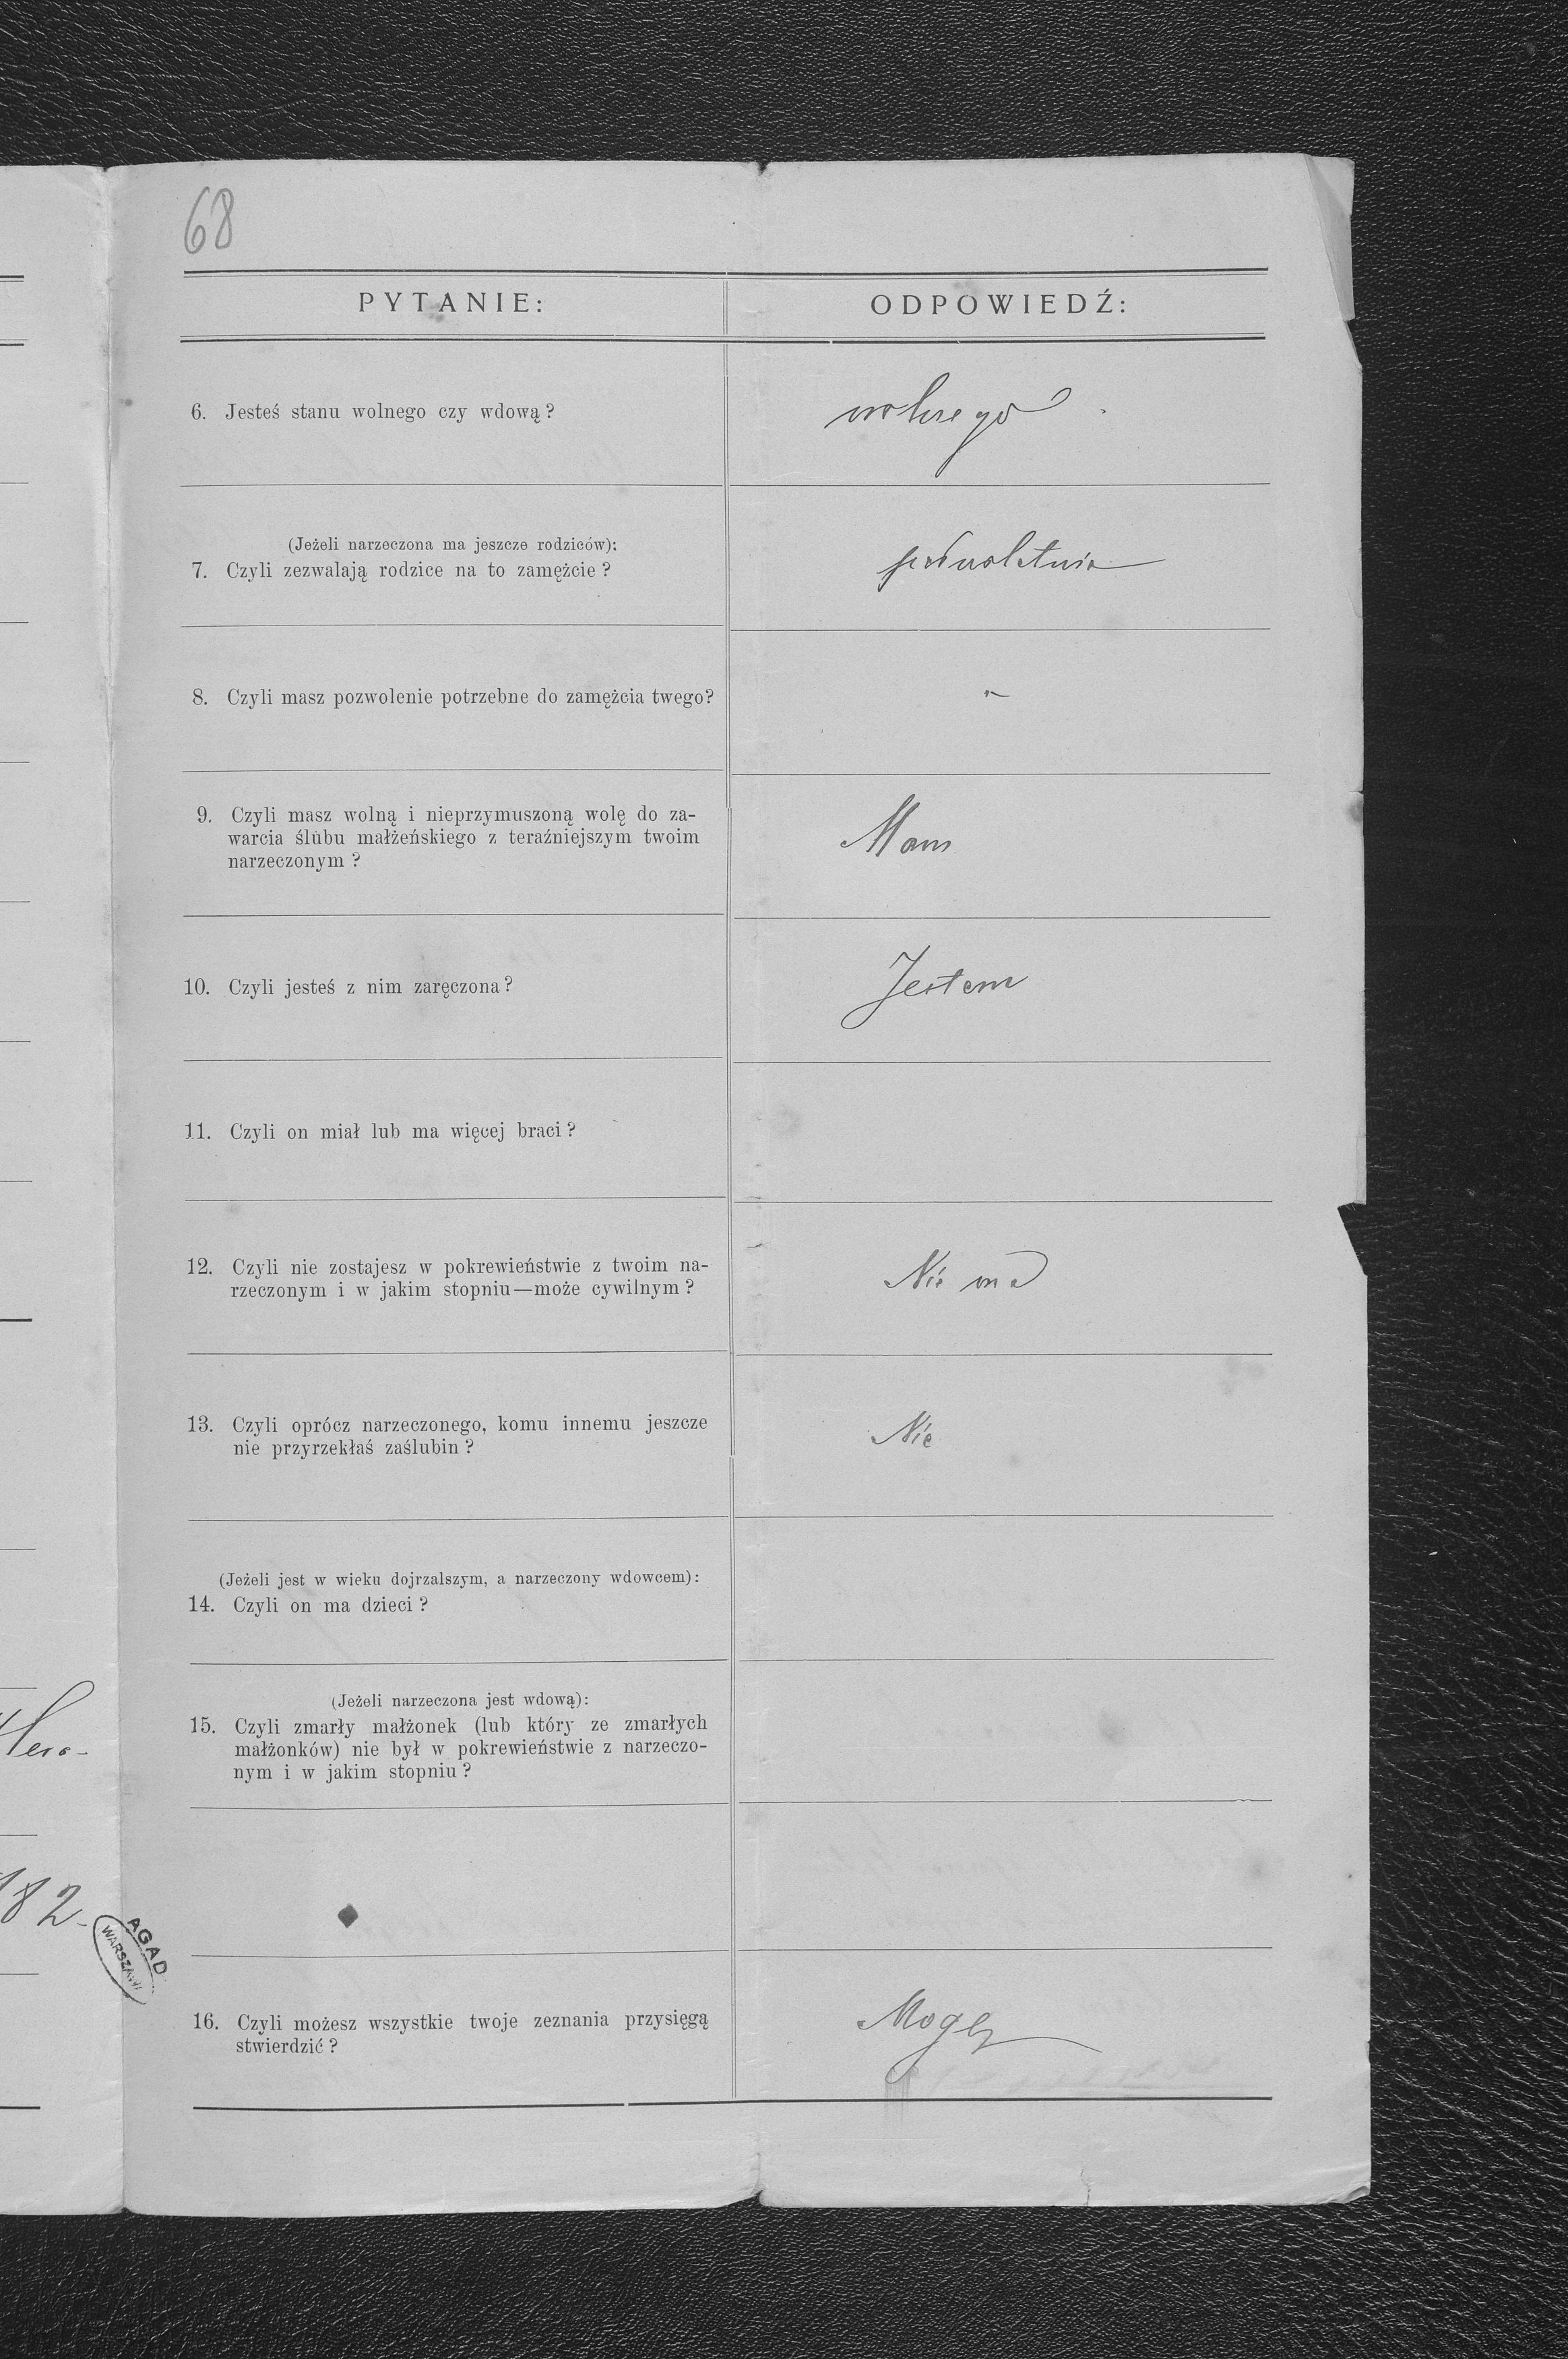 68
PYTANIE:
ODPOWIEDŹ:
6. Jesteś stanu wolnego czy wdową?
wolnego
(Jeżeli narzeczona ma jeszcze rodziców):
7. Czyli zezwalają rodzice na to zamężcie?
pełnoletnia
8. Czyli masz pozwolenie potrzebne do zamężcia twego?
"
9. Czyli masz wolną i nieprzymuszoną wolę do za-
warcia ślubu małżeńskiego z teraźniejszym twoim
narzeczonym?
Mam
10. Czyli jesteś z nim zaręczona?
Jestem
11. Czyli on miał lub ma więcej braci?
12. Czyli nie zostajesz w pokrewieństwie z twoim na-
rzeczonym i w jakim stopniu—może cywilnym?
Nie ma
13. Czyli oprócz narzeczonego, komu innemu jeszcze
nie przyrzekłaś zaślubin?
Nie
(Jeżeli jest w wieku dojrzalszym, a narzeczony wdowcem):
14. Czyli on ma dzieci?
(Jeżeli narzeczona jest wdową):
15. Czyli zmarły małżonek (lub który ze zmarłych
małżonków) nie był w pokrewieństwie z narzeczo-
nym i w jakim stopniu?
182-
AGAD
WARSZAWA
16. Czyli możesz wszystkie twoje zeznania przysięgą
stwierdzić?
Mogę